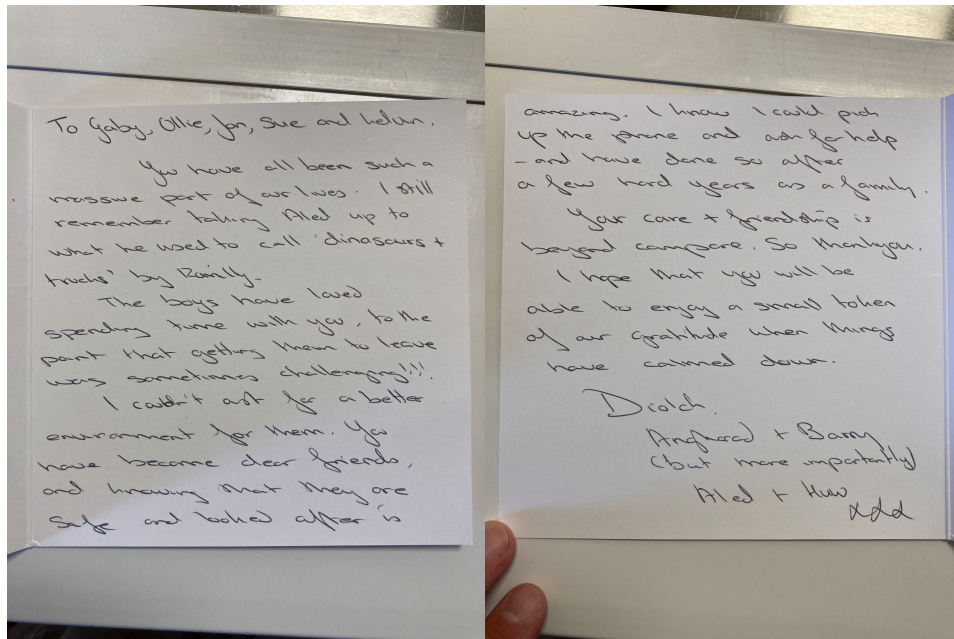 To Gaby, Ollie, Jon, Sue and Kelvin.
You have all been such a
massive part of our lives. I still
remember taking Aled up to
what he used to call 'dinosaurs +
trucks' by
The boys have loved
spending time with you, to the
point that getting them to leave
was sometimes challenging!!!
I couldn't ask for a better
environment for them. You
have become dear friends,
and knowing that they are
safe and looked after is
amazing. I know I could pick
up the phone and ask for help
- and have done so after
a few hard years as a family.
Your care + friendship is
beyond compare. So thankyou.
I hope that you will be
able to enjoy a small token
of our gratitude when things
have calmed down.
Diolch.
Angharad + Barry
(but more importantly)
Aled + Huw
xxx